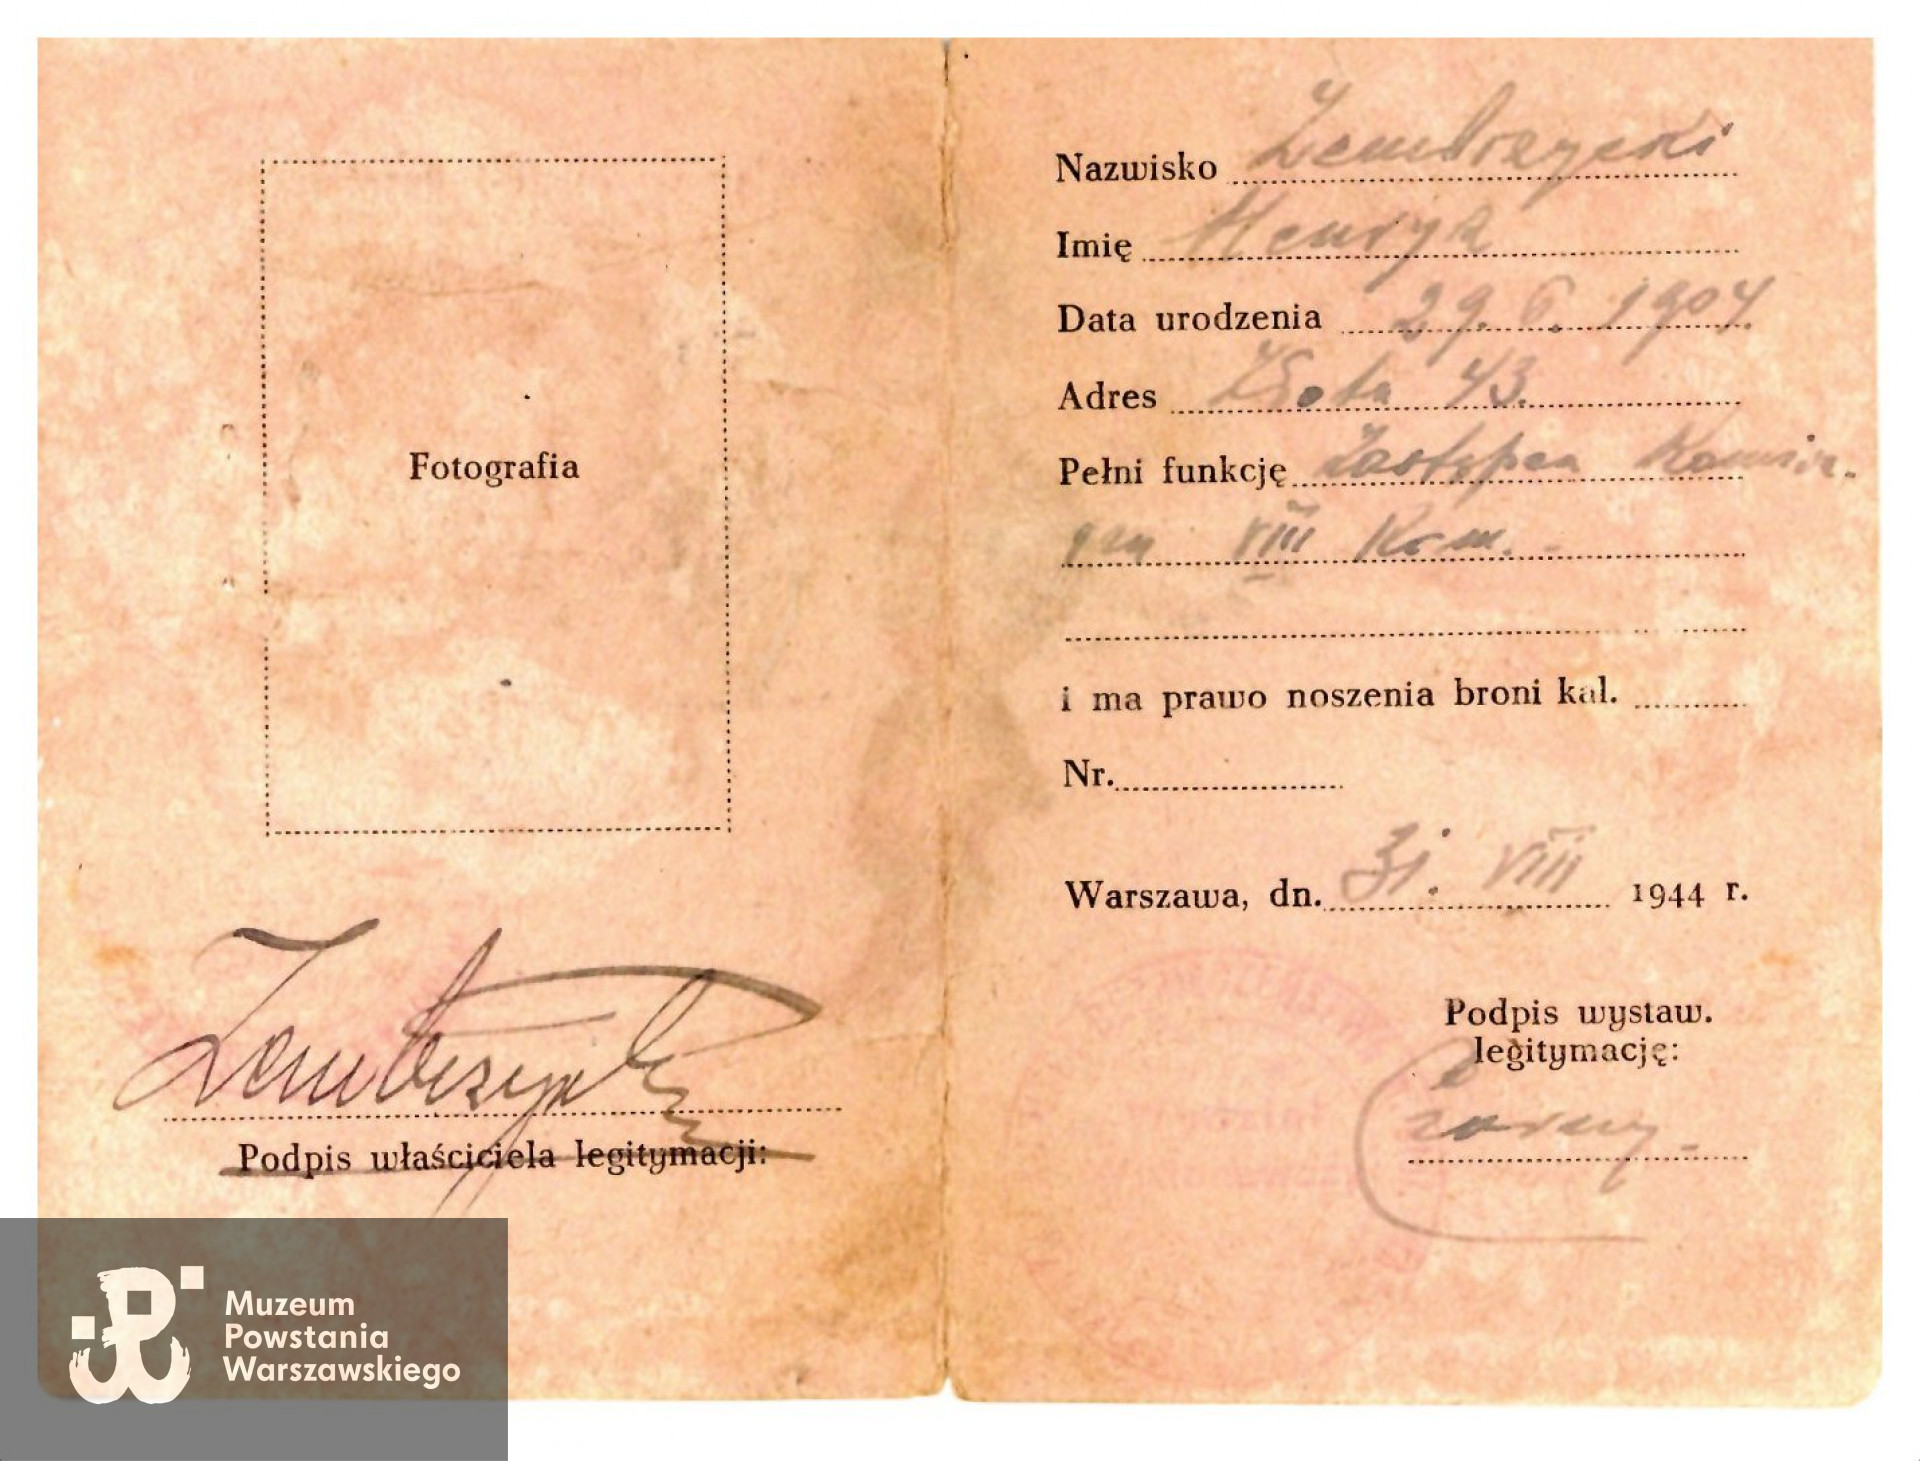 Fotografia
Zembrzyski
Podpis właściciela legitymacji:
Nazwisko Zembrzyski
Imię Henryk
Data urodzenia 29. 6. 1904.
Adres Złota 43.
Pełni funkcję Zastępca Komisa-
VIII Kom.
i ma prawo noszenia broni kal.
Nr.
Warszawa, dn. 31. VIII 1944 r.
Podpis wystaw.
legitymację:
Czarny
Muzeum
Powstania
Warszawskiego